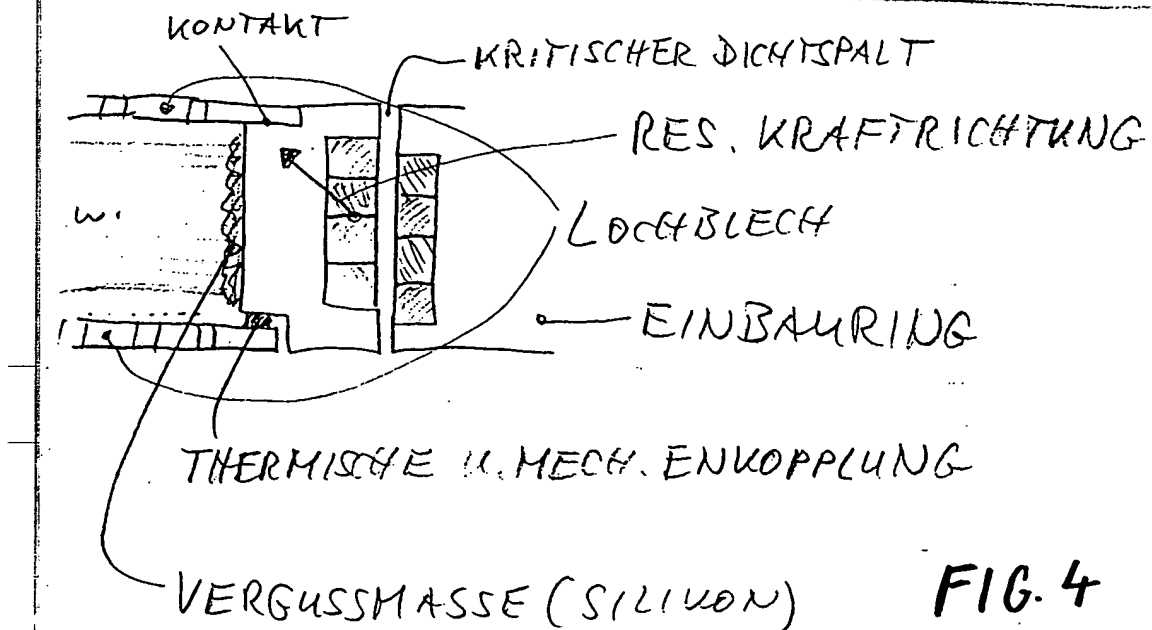 KONTAKT
KRITISCHER DICHTSPALT
RES. KRAFTRICHTUNG
LOCHBLECH
W.
EINBAURING
THERMISCHE U. MECH. ENKOPPLUNG
VERGUSSMASSE (SILIKON)
FIG. 4